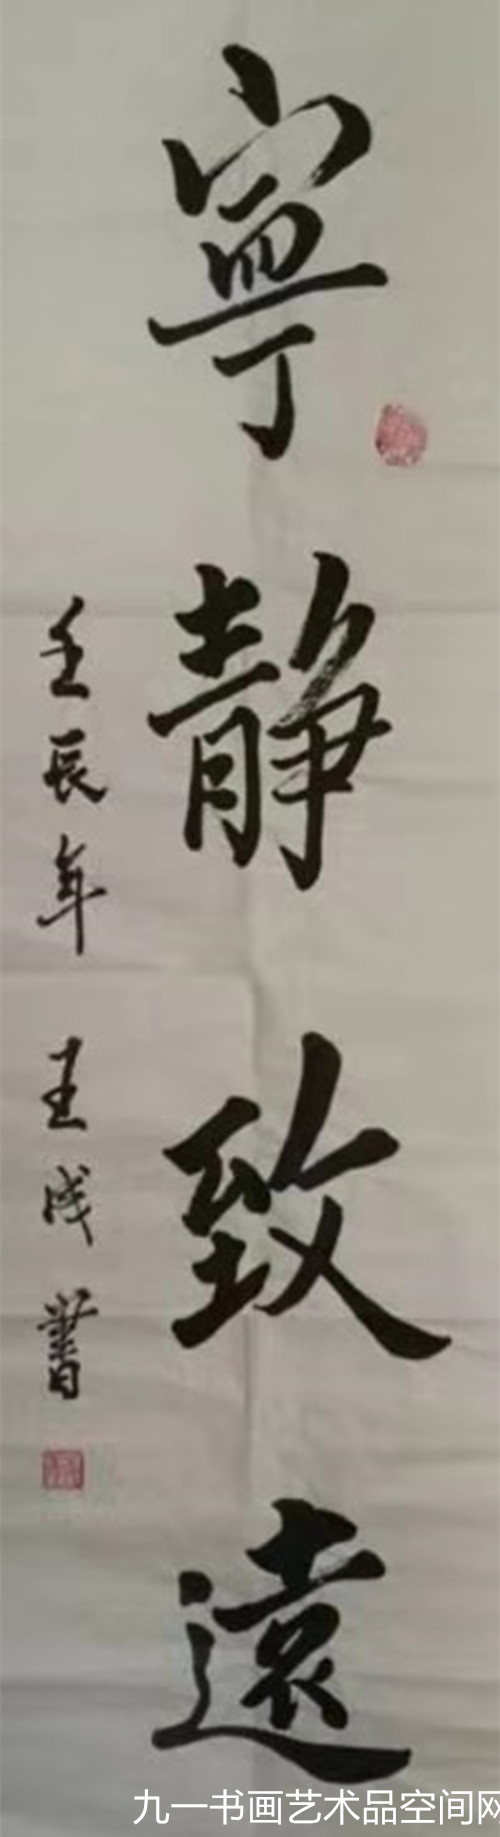 寧靜致遠
壬辰年 王成書
九一书画艺术品空间网